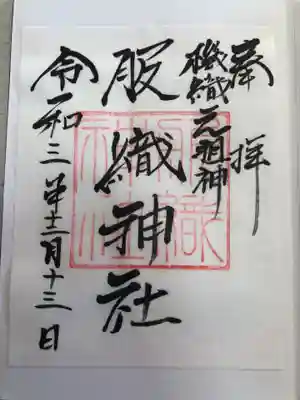 奉拝
機織元祖神
服織神社
令和三年十二月十三日
服織神社